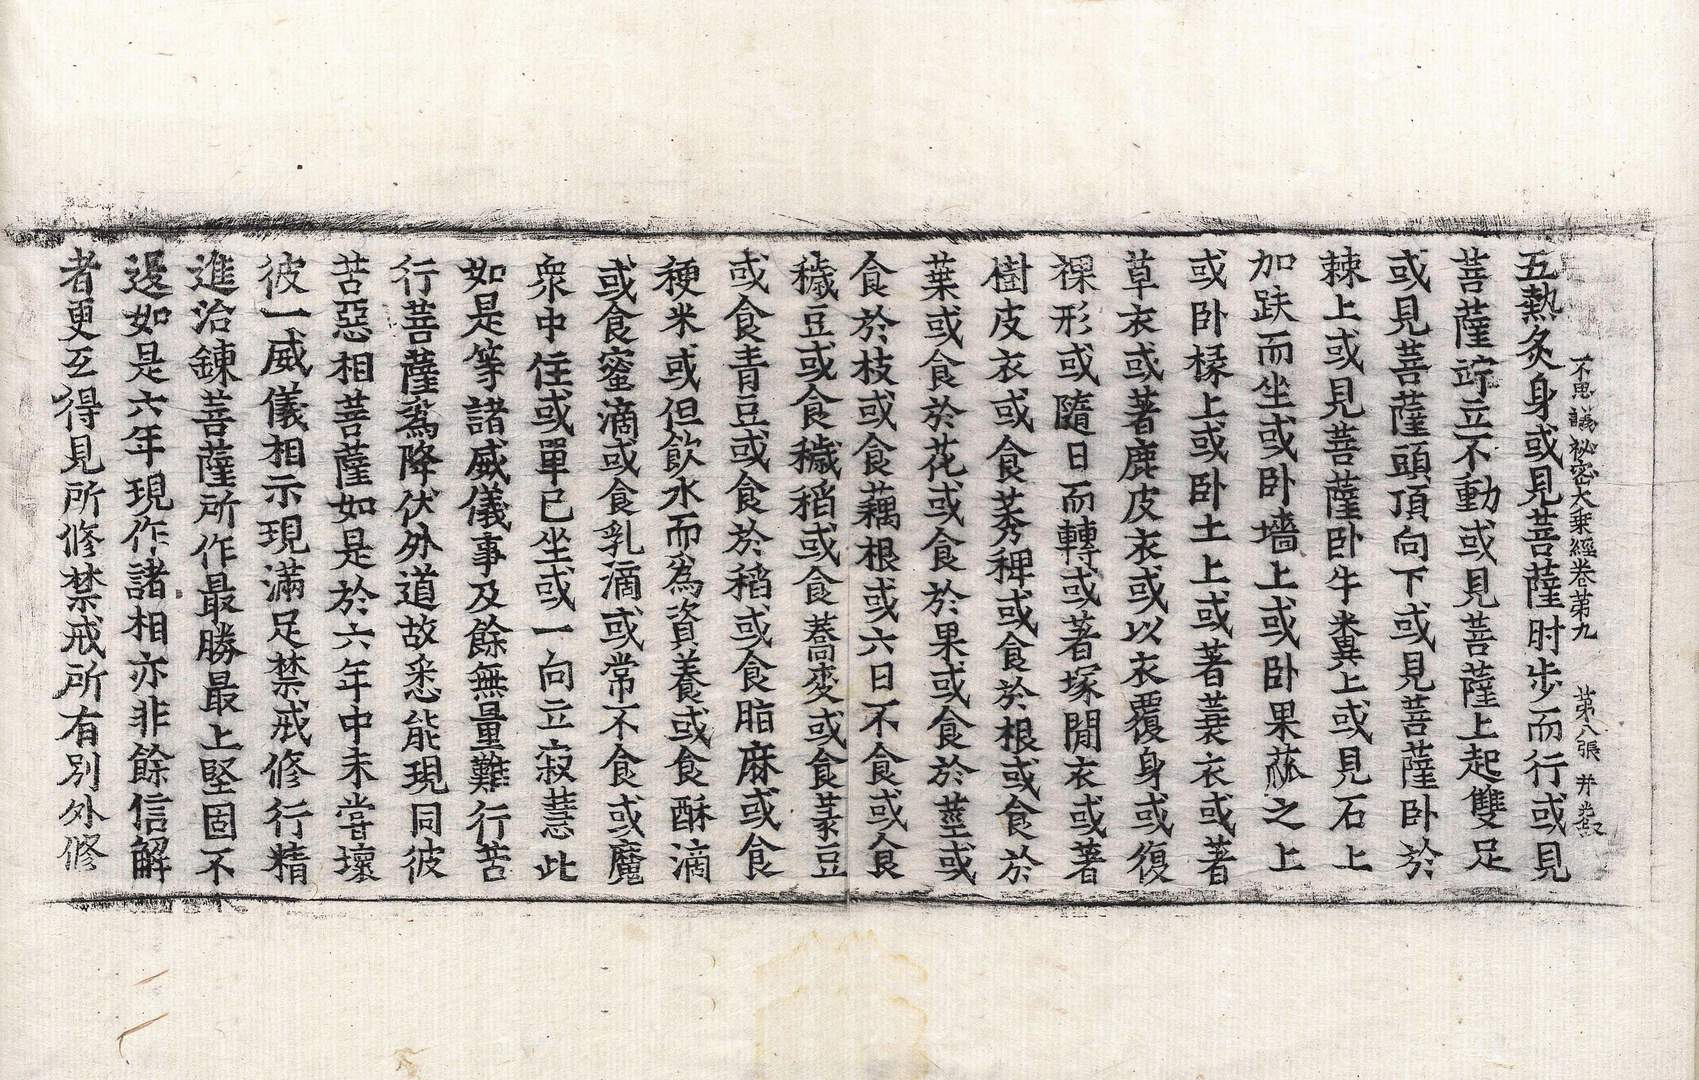 不思議祕密大乘經卷第九 第八張 幷
五熱炙身或見菩薩肘步而行或見
菩薩竚立不動或見菩薩上起雙足
或見菩薩頭頂向下或見菩薩卧於
棘上或見菩薩卧牛糞上或見石上
加趺而坐或卧墻上或卧果蓏之上
或卧椽上或卧土上或著蓑衣或著
草衣或著鹿皮衣或以衣覆身或復
裸形或隨日而轉或著塚閒衣或著
樹皮衣或食莠稗或食於根或食於
葉或食於花或食於果或食於莖或
食於枝或食藕根或六日不食或食
穢豆或食穢稻或食蕎麥或食菉豆
或食青豆或食於稻或食脂麻或食
粳米或但飮水而爲資養或食酥滴
或食蜜滴或食乳滴或常不食或魔
衆中住或單已坐或一向立寂慧此
如是等諸威儀事及餘無量難行苦
行菩薩爲降伏外道故悉能現同彼
苦惡相菩薩如是於六年中未甞壞
彼一威儀相示現滿足禁戒修行精
進治鍊菩薩所作最勝最上堅固不
邊如是六年現作諸相亦非餘信解
者更互得見所修禁戒所有別外修